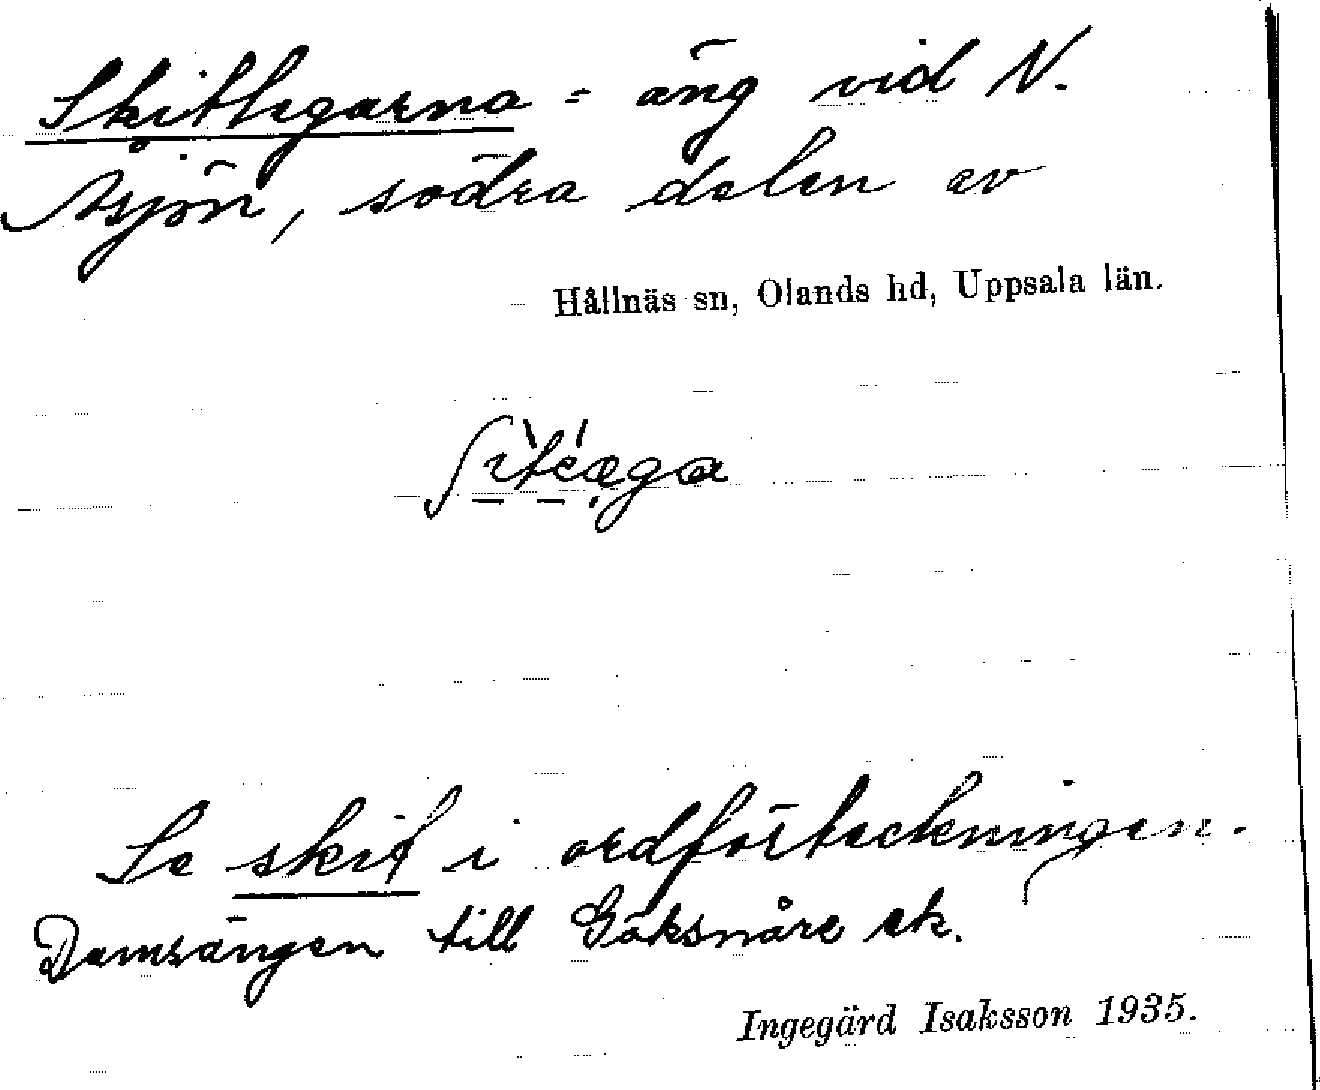 Skithagarna = äng vid N.
Åsjön, södra delen av
Hållnäs sn, Olands hd, Uppsala län.
Se skit i ordförteckningen.
Damsängen till Göksnåre ek.
Ingegärd Isaksson 1935.